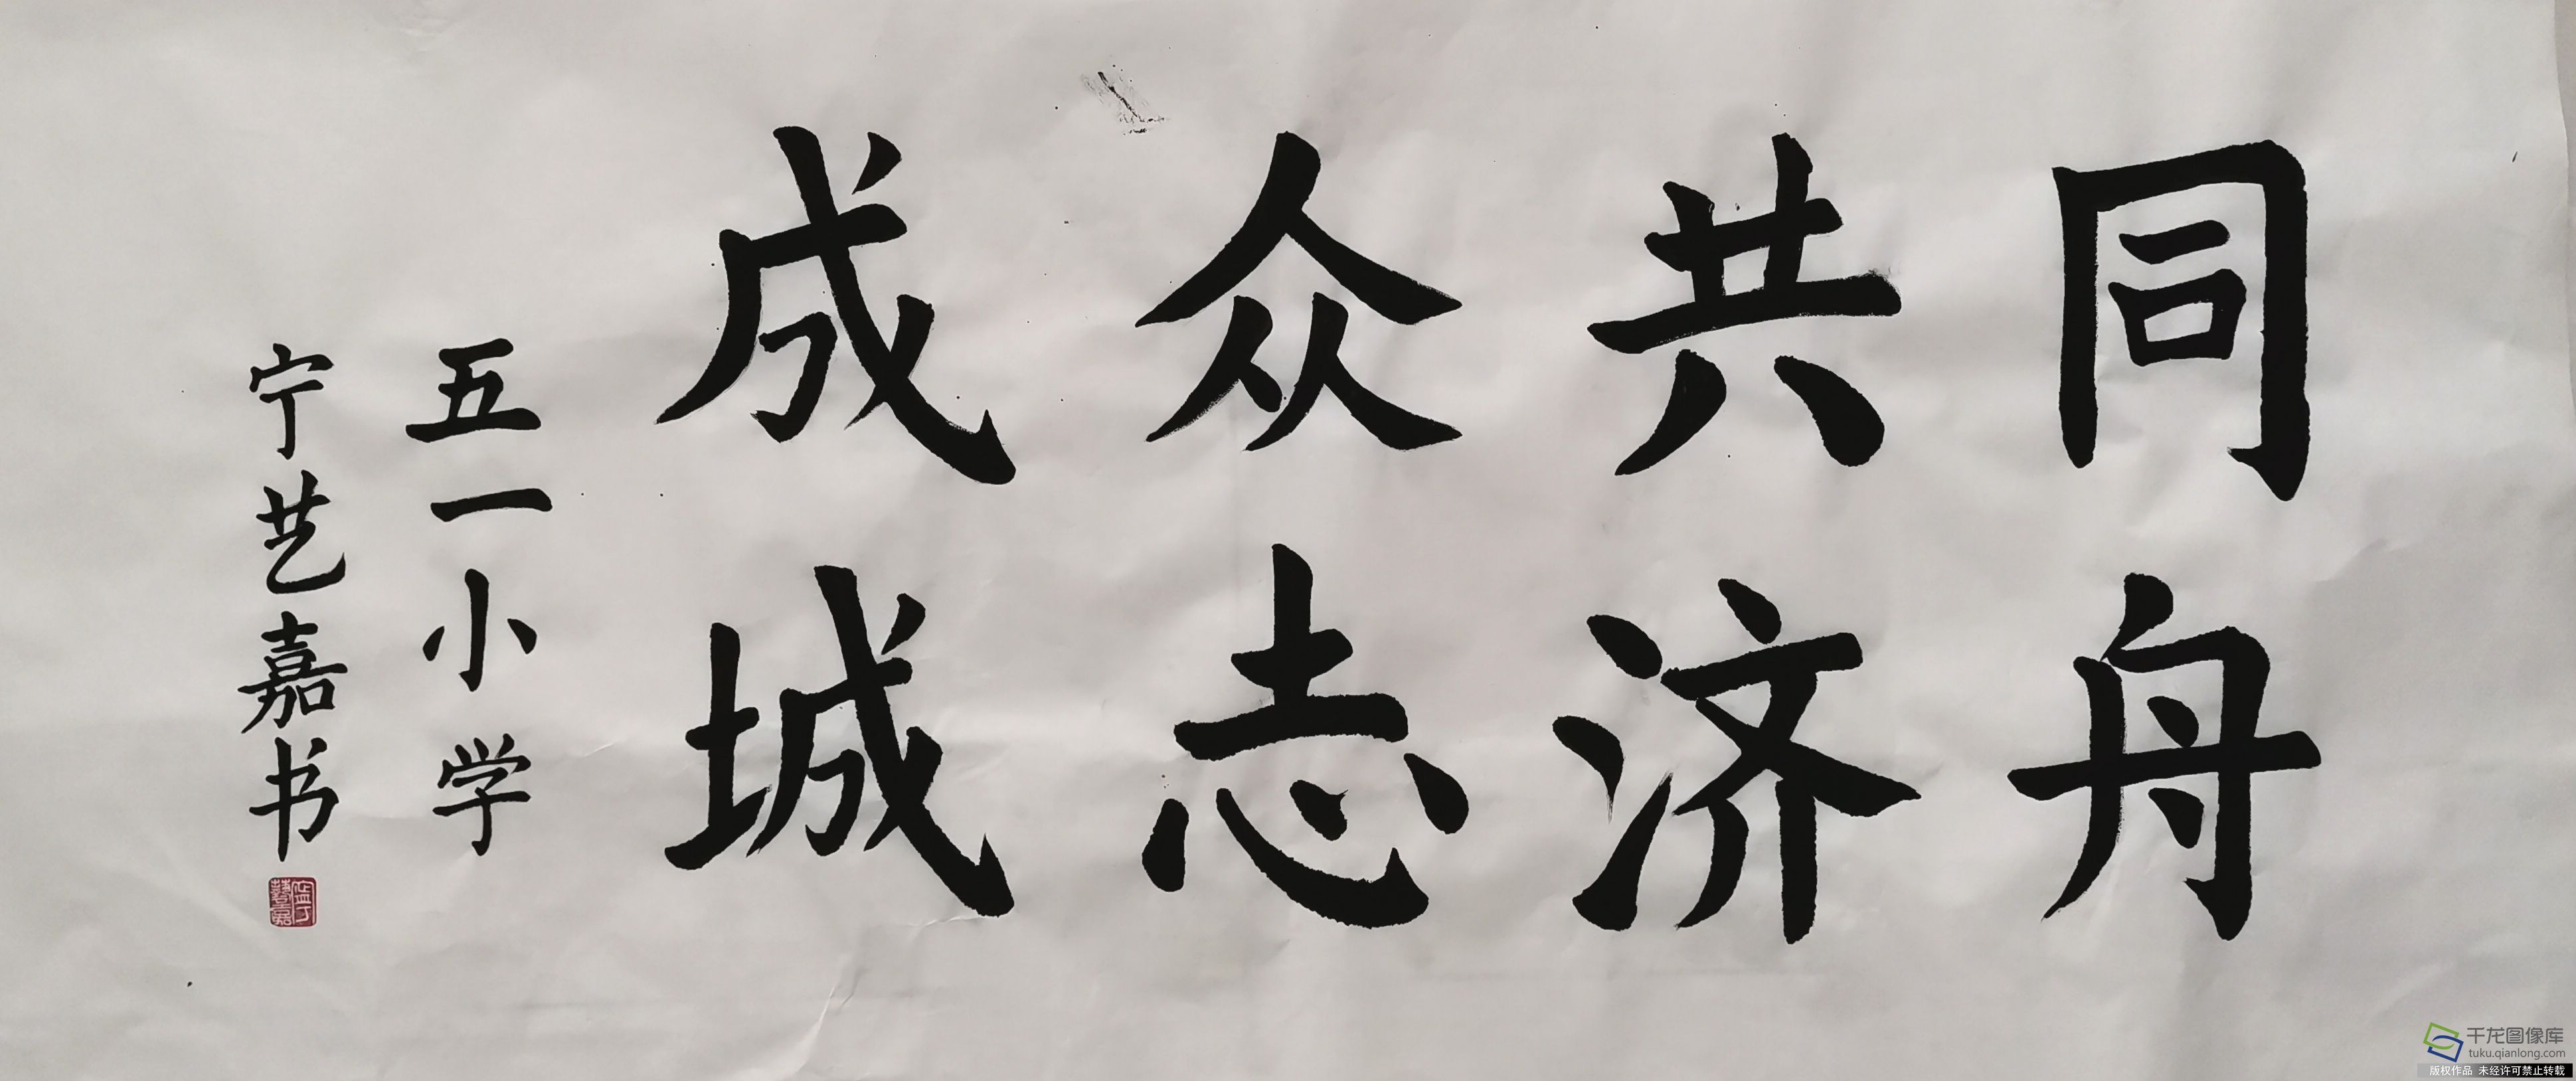 同舟
共济
众志
成城
五一小学
宁艺嘉书
千龙图像库
tuku.qianlong.com
版权作品 未经许可禁止转载